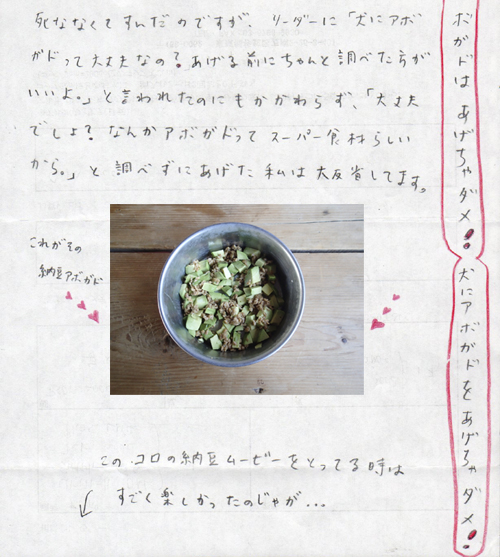 死ななくてすんだのですが、リーダーに「犬にアボ
ガドって大丈夫なの？あげる前にちゃんと調べた方が
いいよ。」と言われたのにもかかわらず、「大丈夫
でしょ？なんかアボガドってスーパー食材らしい
から。」と調べずにあげた私は大反省してます。
ボガドはあげちゃダメ！犬にアボガドをあげちゃダメ！
これがその
納豆アボガド
このコロの納豆ムービーをとってる時は
すごく楽しかったのじゃが...